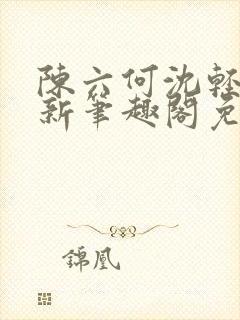 陳六何沈輕
新筆趣閣免
錦凰